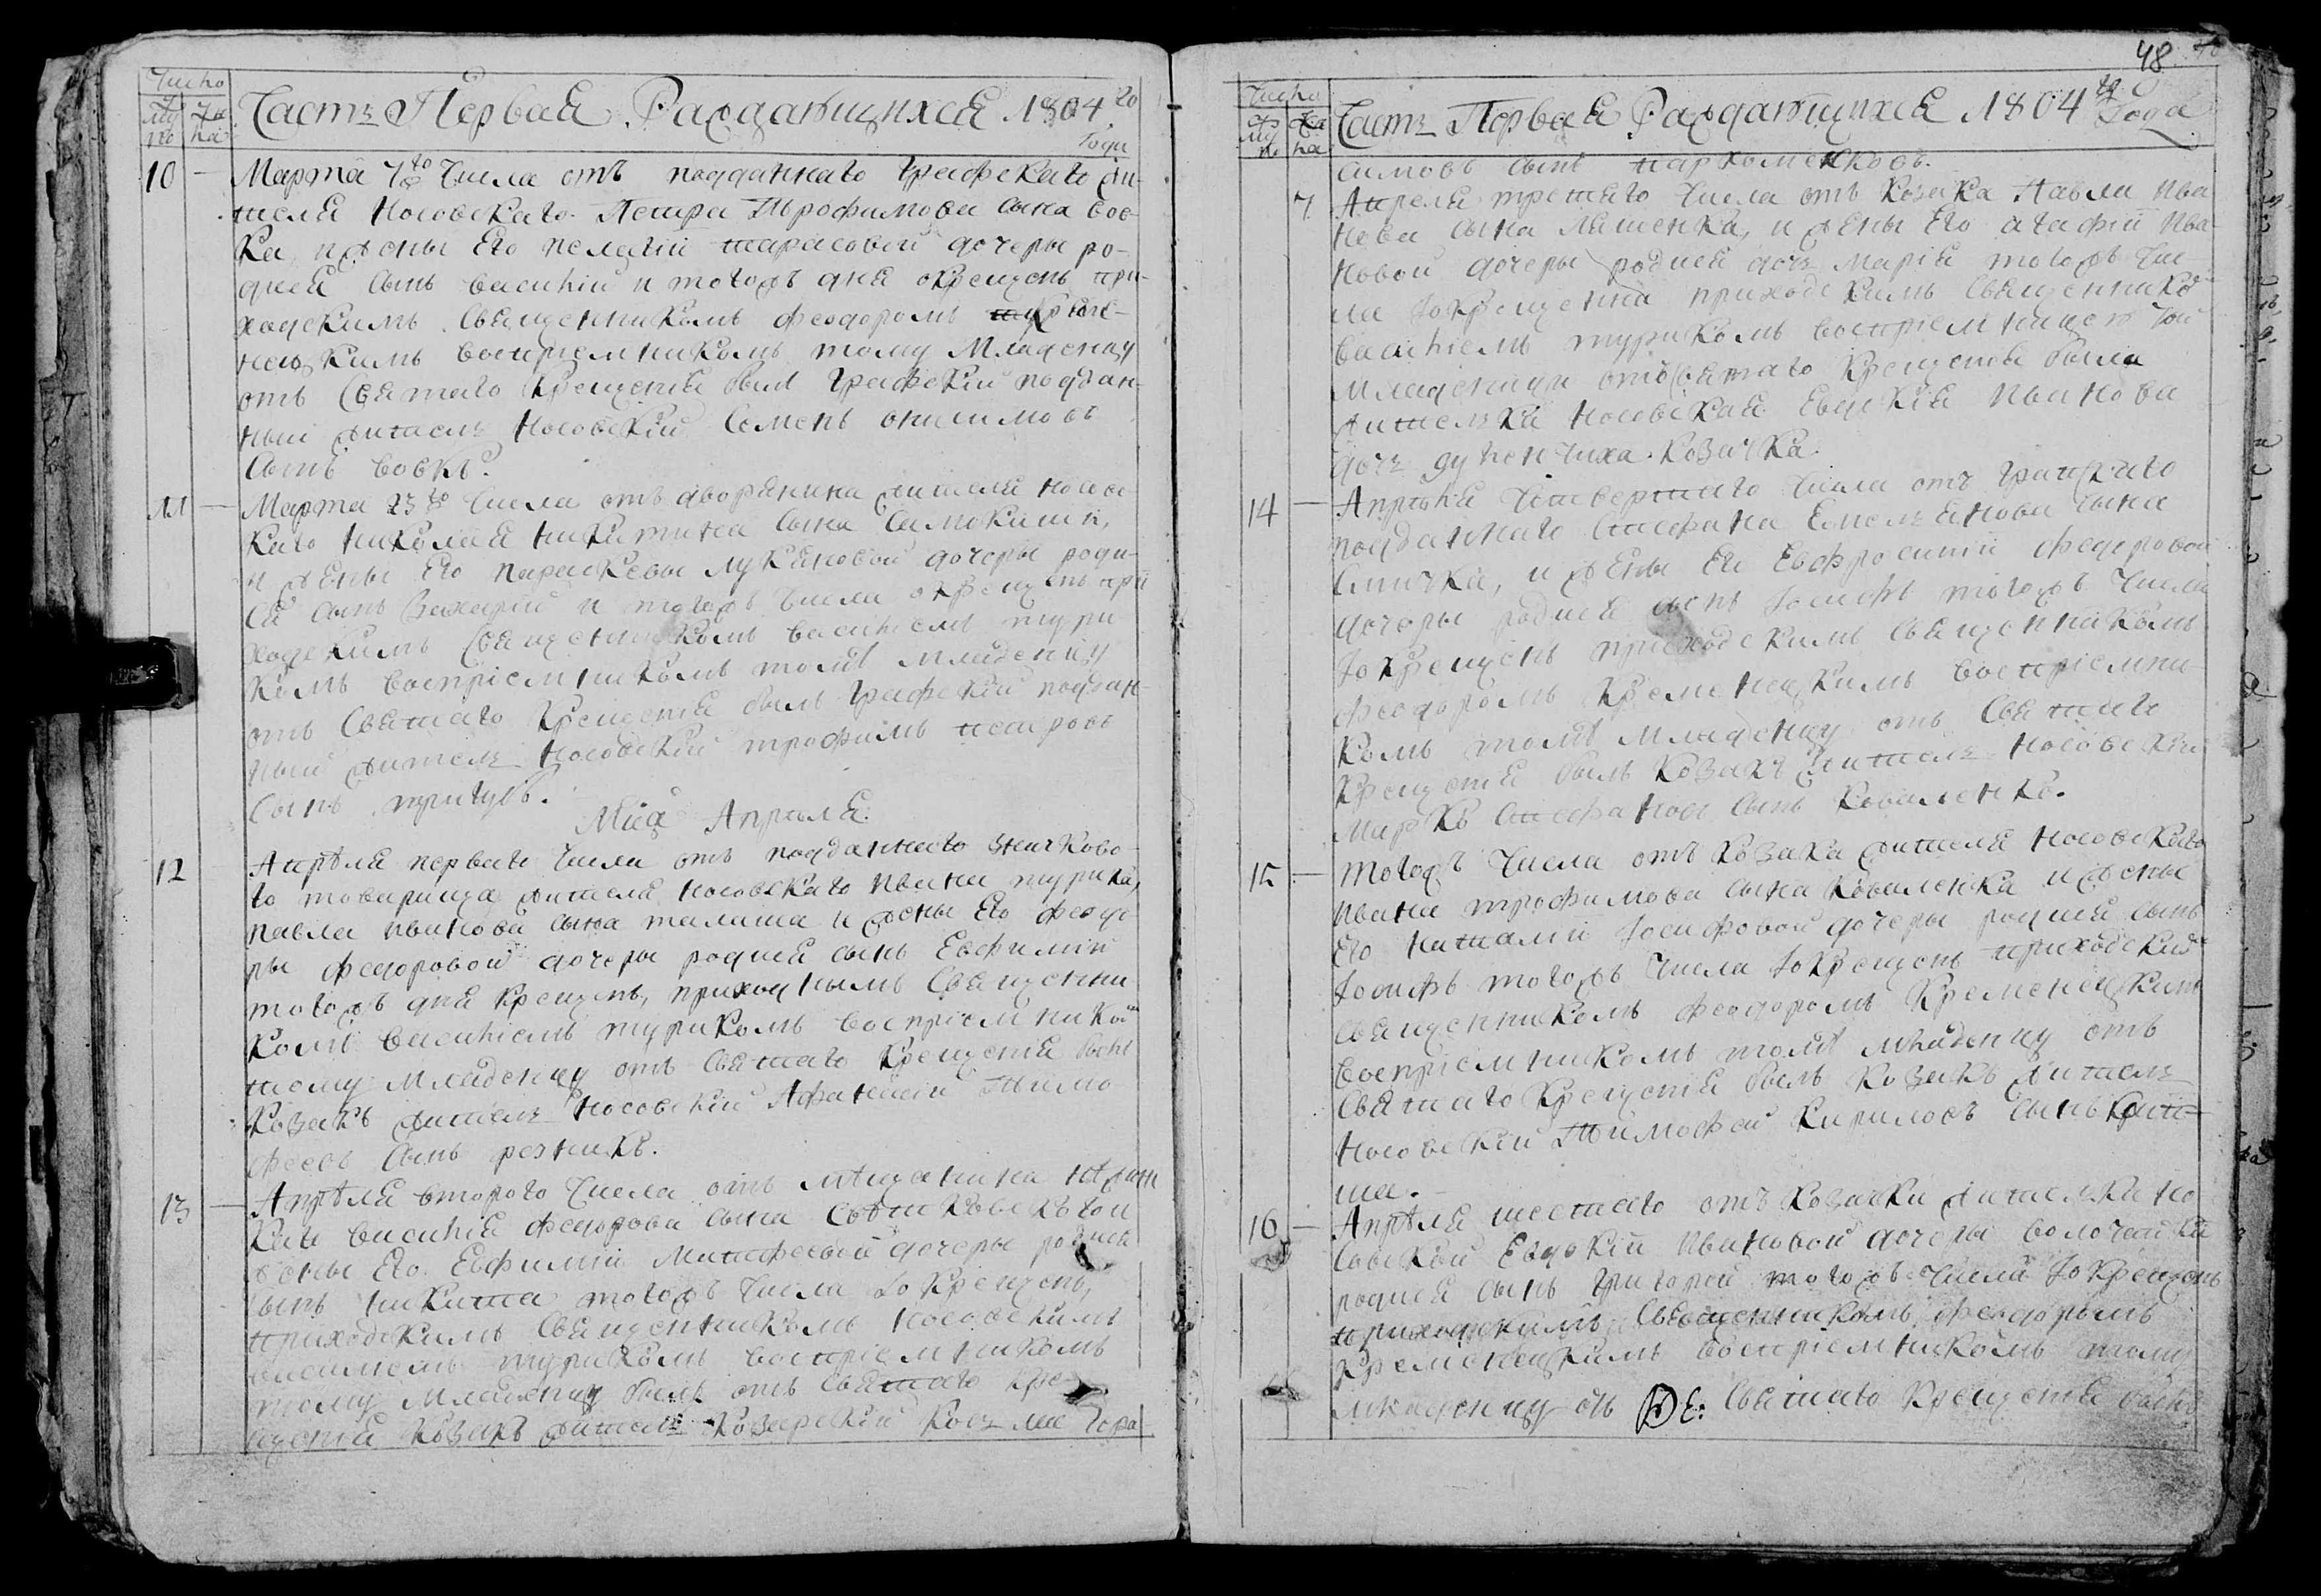 Число
Часть Первая Раждающихся 1804 го
Году
10 — Марта 7 го Числа отъ подданнаго Графскаго жи-
теля Носовскаго Петра Трофимова сына Вов-
ка, и жены Его Пелагии Тарасовой дочеры ро-
дися сынъ Василий и тогожъ дня окрещенъ при-
ходскимъ Священникомъ Феодоромъ
нецкимъ восприемникомъ тому Младенцу
отъ Святаго Крещения был Графский поддан-
ный житель Носовский Семенъ Онисимовъ
сынъ Вовкъ.
11 — Марта 23 го Числа отъ дворянина жителя Носов-
каго Николая Никитина сына Самокиши,
и жены Его Параскевы Лукяновой дочеры роди-
ся сынъ Захарий и тогожъ Числа окрещенъ при
ходскимъ Священникомъ Василиемъ Тури
комъ восприемникомъ томя Младенцу
отъ Святаго Крещения былъ Графский поддан-
ный житель Носовский Трофимъ Петровъ
сынъ
Мца Апреля:
12 Апреля перваго Числа отъ подданнаго значково-
го товарища жителя Носовскаго Ивана Турика,
Павла Иванова сына Талаша и жены Его Феодо
ры Федоровой дочеры родися сынъ Евфимий
тогожъ дня крещенъ, приходнымъ Священни
комъ Василиемъ Турикомъ восприемником
тому Младенцу отъ Святаго Крещения былъ
Козакъ житель Носовский Афанасий Тимо
феевъ сынъ резникъ.
13 — Апреля второго Числа отъ мещанина Нежин
каго Василия Федорова сына и
жены Его Евфимии Матфеевой дочеры родися
сынъ Никита тогожъ Числа Iокрещенъ,
приходскимъ Священникомъ Носовскимъ
Василиемъ Турикомъ восприемникомъ
тому Младенцу былъ отъ Святаго Кре-
щения Козакъ житель Козарский Козма Гера
48
Число
Часть Первая Раждающихся 1804 го
Года
симовъ сынъ Пархоменковъ.
7 Апреля третяго Числа отъ Козака Павла Ива
нова сына Ляшенка, и жены Его Агафии Ива-
новой дочеры родися дочь Мария тогожъ Чис
ла Iокрещенна приходскимъ Священнико
Василиемъ Турикомъ восприемницею той
Младеници отъ Святаго Крещения была
жителька Носовская Евдокия Иванова
дочь Козачка.
14 — Апреля Четвертаго Числа отъ Графскаго
подданнаго Стефана Емельянова сына
и жены Его Евфросинии Федоровой
дочеры родися сынъ Iосифъ тогожъ Числа
Iокрещенъ приходскимъ Священникомъ
Феодоромъ Кременецкимъ восприемни-
комъ томя Младенцу отъ Святаго
Крещения былъ Козакъ житель Носовский
Марко Стефановъ сынъ Коваленко.
15 — Тогожъ Числа отъ Козака жителя Носовскаго
Ивана Трофимова сына Коваленка и жены
Его Наталии Iосифовой дочеры родися сынъ
Iосифъ тогожъ Числа Iокрещенъ приходским
Священникомъ Феодоромъ Кременецкимъ
восприемникомъ томя младенцу отъ
Святаго Крещения былъ Козакъ житель
Носовский Тимофей Кириловъ сынъ
ша.
16 — Апреля шестаго отъ Козачки жительки Но
совской Евдокии Ивановой дочеры
родися сынъ Григорий тогожъ Числа Iокрещенъ
приходскимъ Священникомъ Феодоромъ
Кременецкимъ восприемникомъ тому
младенцу отъ Святаго Крещения былъ